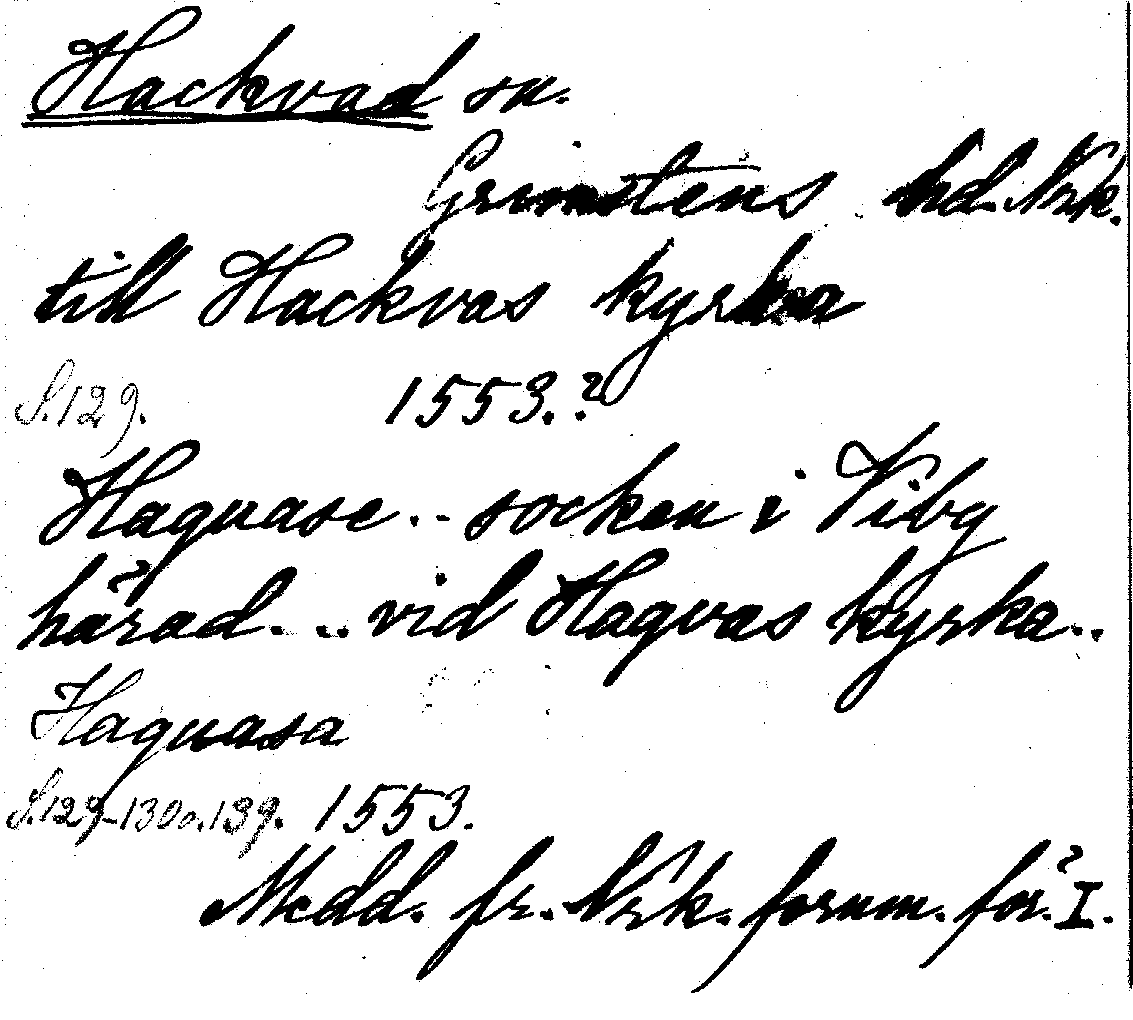 Hackvad sn.
Grimstens hd. Nrk.
till Hackvas kyrka
S. 129. 1553.?
Haquase .. socken i Viby
härad. .. vid Haqvas kyrka..
Haquasa
S. 129-130 o. 139. 1553.
Medd. fr. Nrk. fornm. för. I.